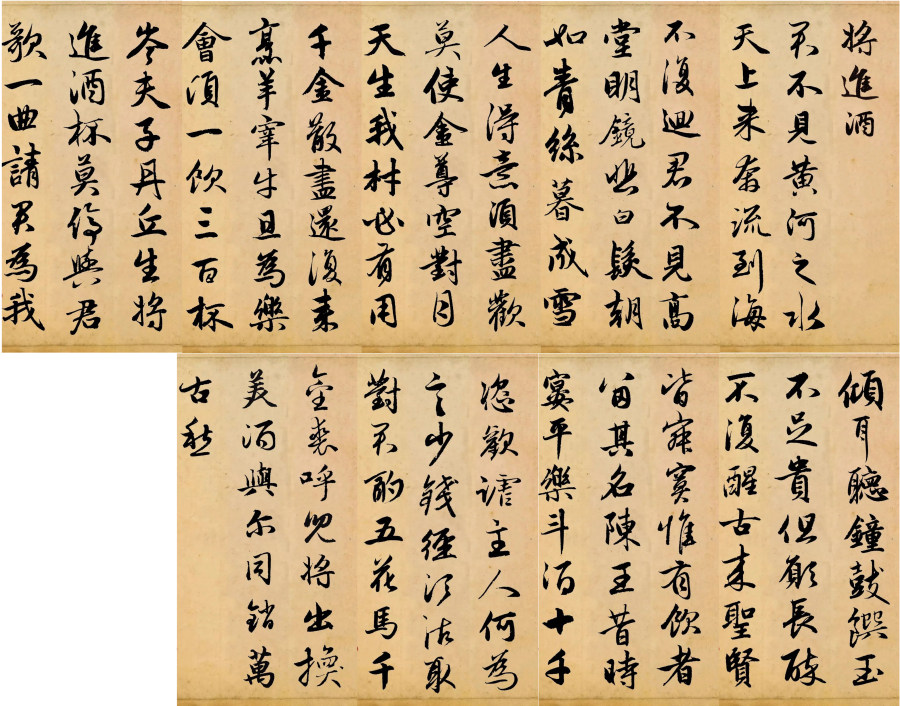 將進酒
君不見黄河之水
天上來奔流到海
不復迴君不見高
堂明鏡悲白髮朝
如青絲暮成雪
人生得意須盡歡
莫使金尊空對月
天生我材必有用
千金散盡還復來
烹羊宰牛且為樂
會須一飲三百杯
岑夫子丹丘生將
進酒杯莫停與君
歌一曲請君為我
傾耳聽鐘鼓饌玉
不足貴但願長醉
不復醒古來聖賢
皆寂寞惟有飲者
留其名陳王昔時
宴平樂斗酒十千
恣歡謔主人何為
言少錢徑須沽取
對君酌五花馬千
金裘呼兒將出換
美酒與尔同銷萬
古愁